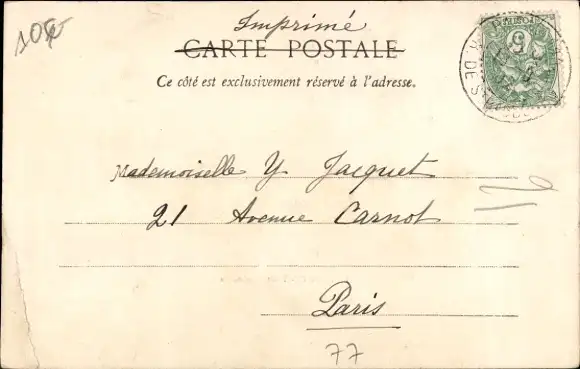 10f
Imprimé
CARTE POSTALE
Ce côté est exclusivement réservé à l'adresse.
Mademoiselle Y Jacquet
21 Avenue Carnot
Paris
77